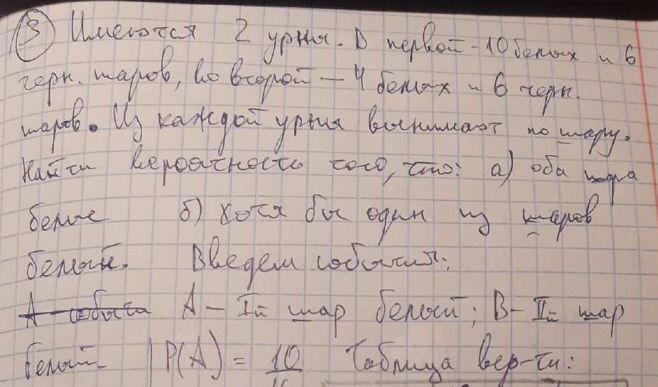 3 Имеются 2 урны. В первой - 10 белых и 6
черн. шаров, во второй - 4 белых и 6 черн.
шаров. Из каждой урны вынимают по шару.
Найти вероятность того, что: а) оба шара
белые б) хотя бы один из шаров
белый. Введем события:
А - событ А - I-й шар белый; В - II-й шар
белый P(A) = 10/16 Таблица вер-ти: